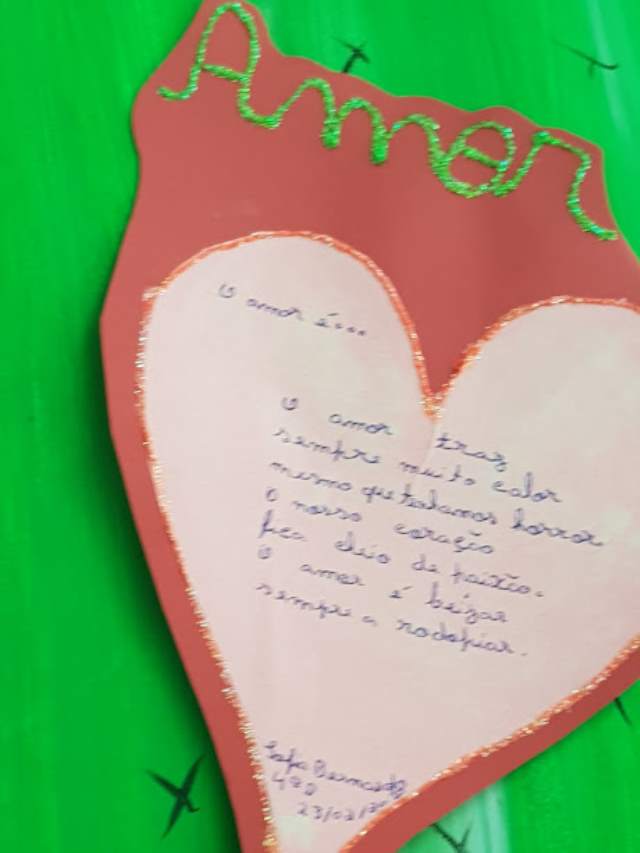 Amor
O amor é...
O amor traz
sempre muito calor
mesmo que horror
o nosso coração
fica cheio de paixão.
O amor é beijar
sempre a rodopiar.
Bernardo
23/02/20